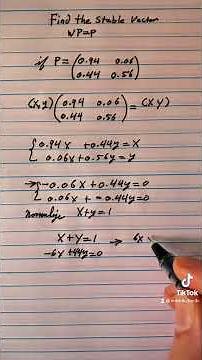 Find the Stable Vector
WP=P
if P = (0.94 0.06
0.44 0.56)
(x,y) (0.94 0.06
0.44 0.56) = (x y)
{ 0.94x + 0.44y = x
0.06x + 0.56y = y
→ -0.06x + 0.44y = 0
0.06x + -0.44y = 0
x + y = 1
x + y = 1 → 6x
-6x + 44y = 0
TikTok